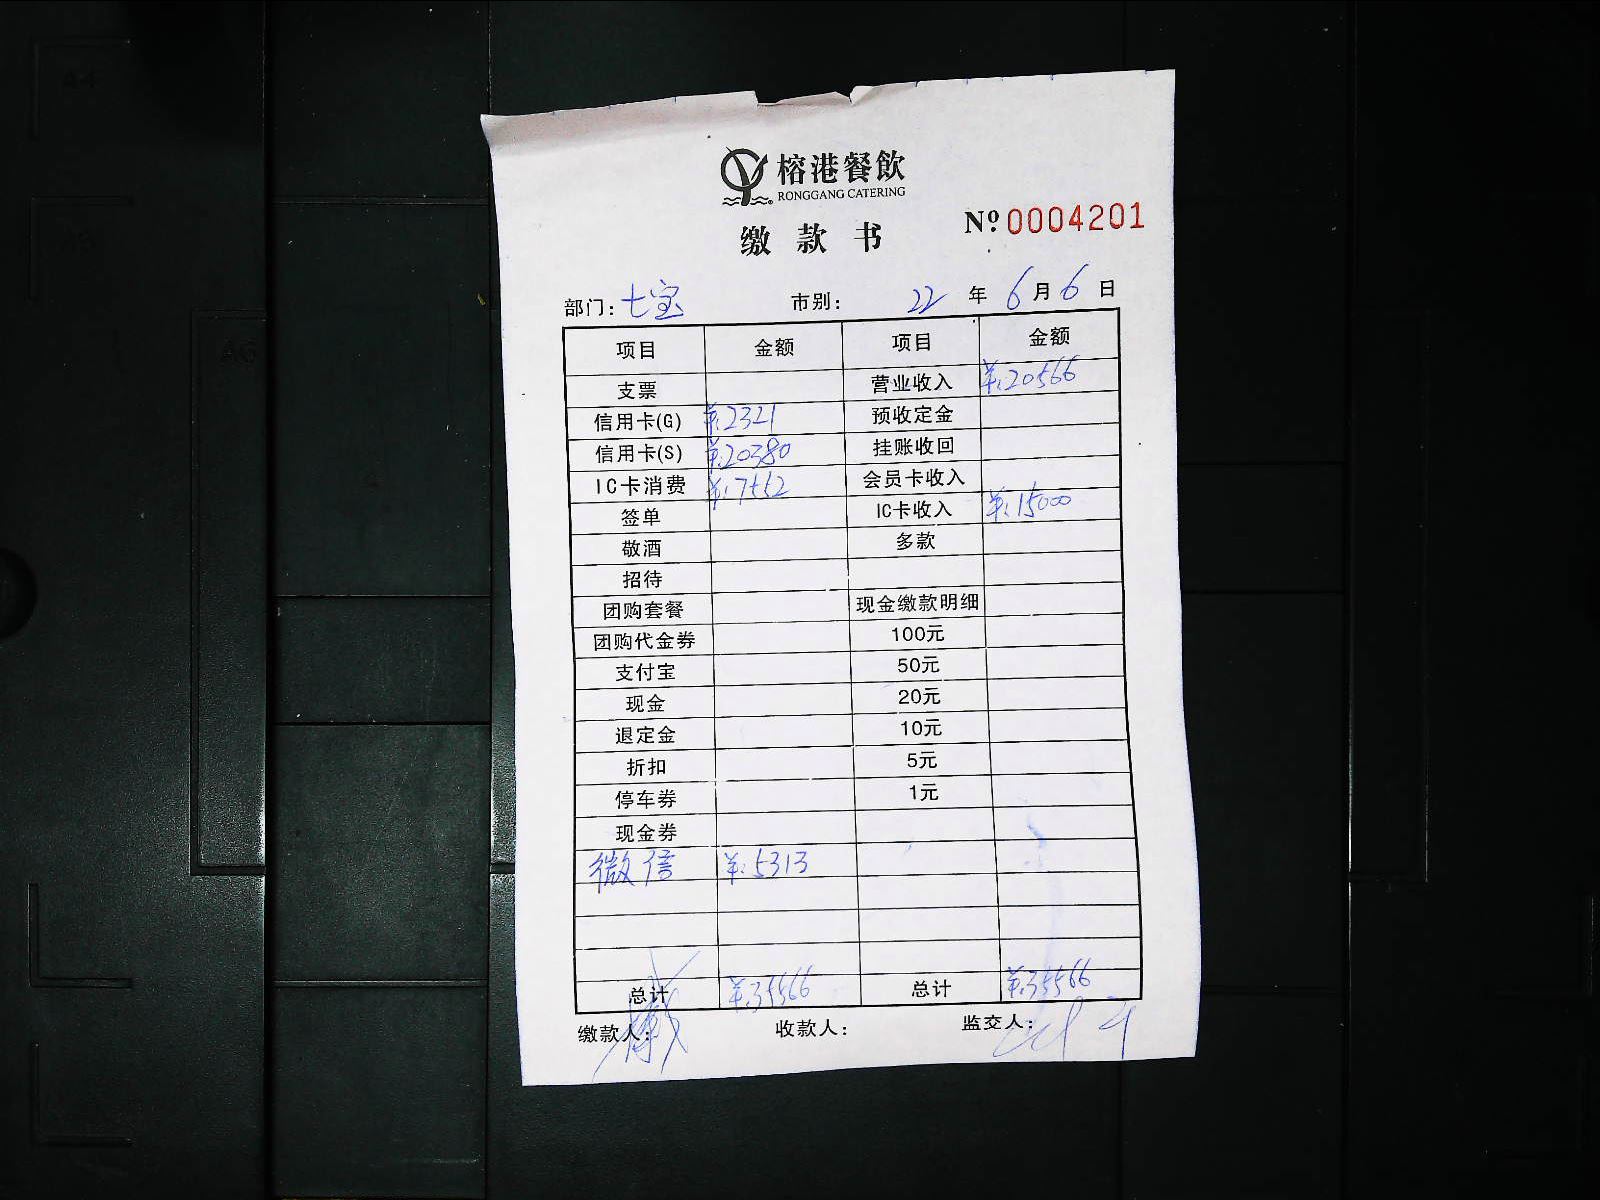 榕港餐飲
RONGGANG CATERING
缴款书
Nº 0004201
部门: 七宝 市别: 22 年 6 月 6 日
项目 金额 项目 金额
支票 营业收入 ¥:20566
信用卡(G) ¥:2321 预收定金
信用卡(S) ¥:20380 挂账收回
IC卡消费 ¥:7552 会员卡收入
签单 IC卡收入 ¥:15000
敬酒 多款
招待
团购套餐 现金缴款明细
团购代金券 100元
支付宝 50元
现金 20元
退定金 10元
折扣 5元
停车券 1元
现金券
微信 ¥:5313
总计 ¥:35566 总计 ¥:35566
缴款人: 收款人: 监交人:
A4
A6